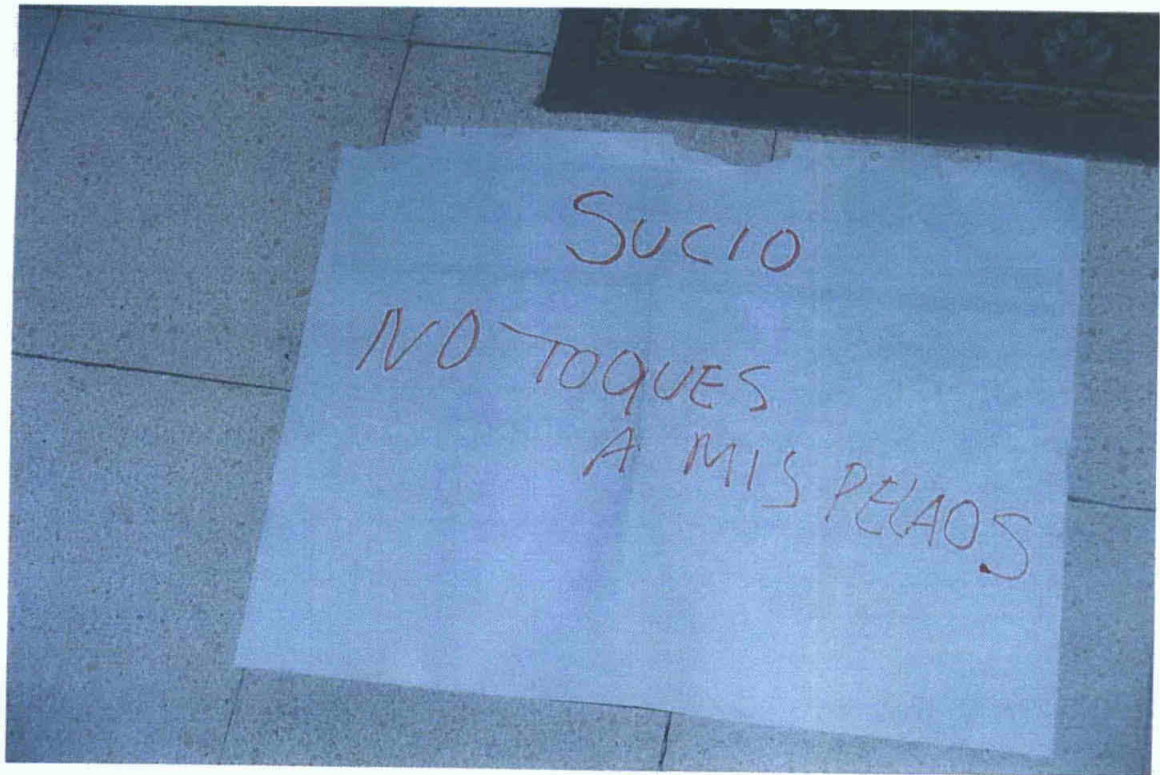 SUCIO
NO TOQUES
A MIS PELAOS